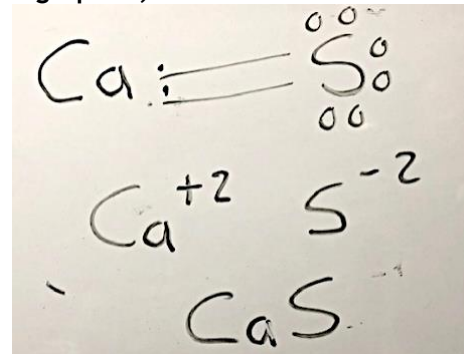 Ca : = S
Ca+2 S-2
CaS